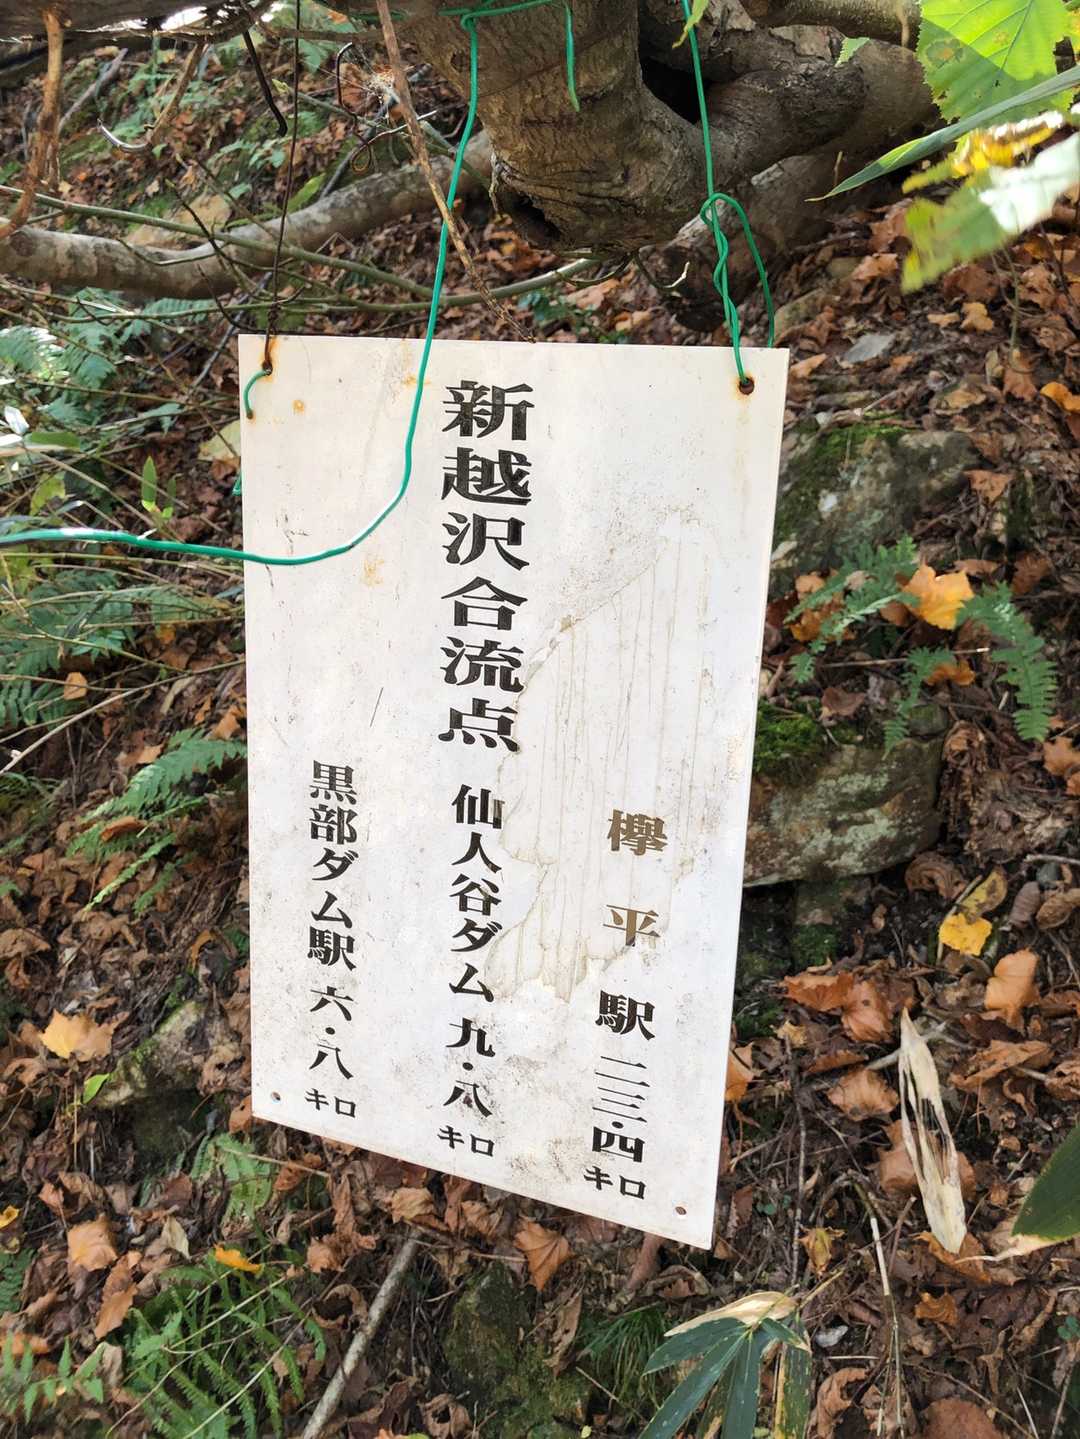 欅平駅 二三・四キロ
新越沢合流点 仙人谷ダム 九・八キロ
黒部ダム駅 六・八キロ